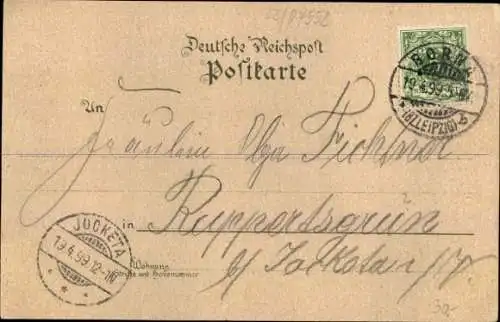 Deutsche Reichspost
Postkarte
BORNA
19.4.99.
*(BZ. LEIPZIG) b
An
Fräulein Olga Fichtner
in Ruppertsgrün
b/ Jocketa i/V.
Wohnung
(Straße und Hausnummer)
JOCKETA
19.4.99.12-1N
30.-